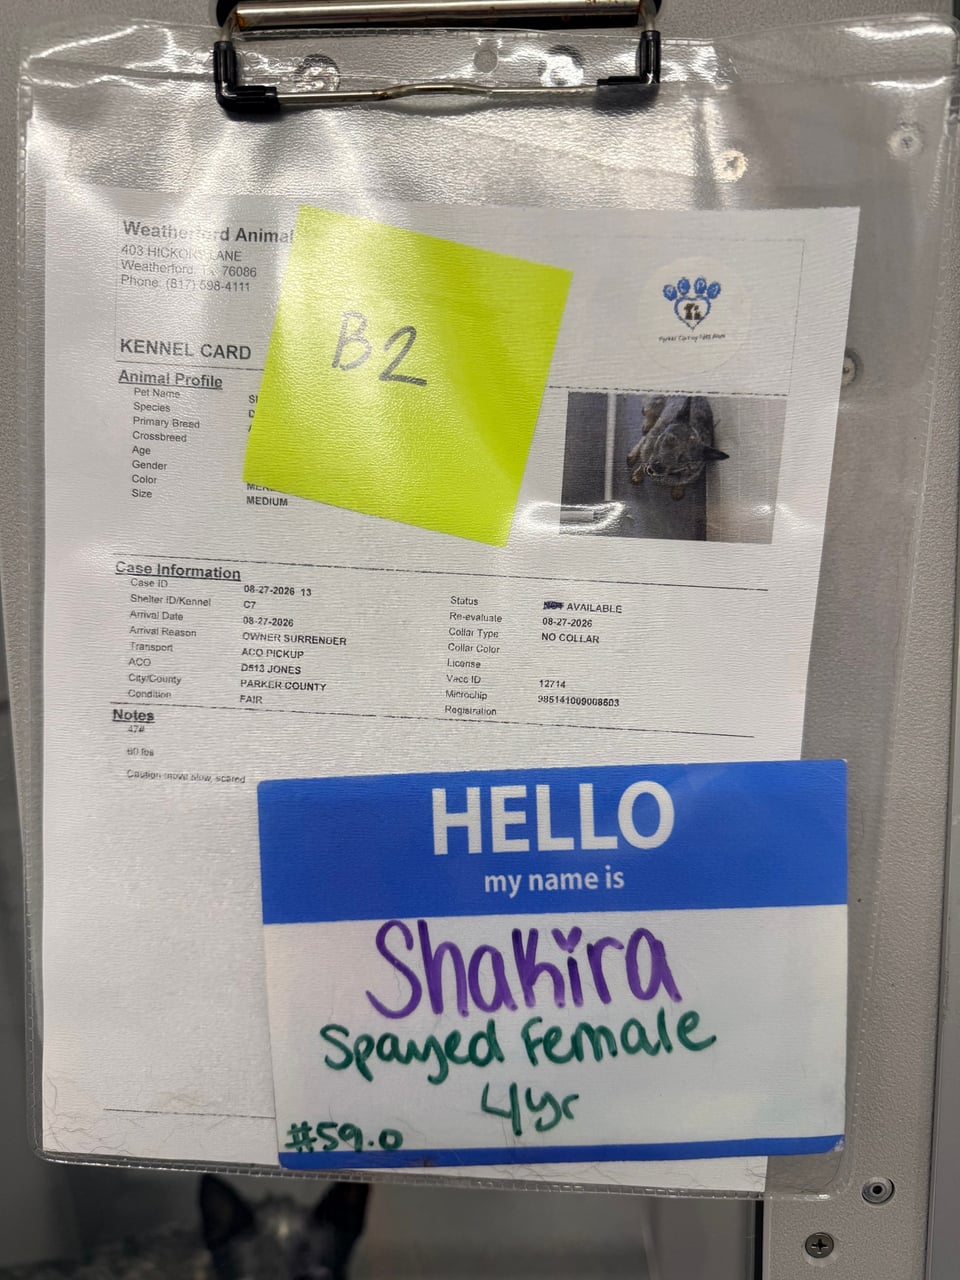 Weatherford Animal
403 HICKORY LANE
Weatherford, TX 76086
Phone: (817) 598-4111
B2
KENNEL CARD
Animal Profile
Pet Name
Species
Primary Breed
Crossbreed
Age
Gender
Color
Size MEDIUM
Case Information
Case ID 08-27-2026 13
Shelter ID/Kennel C7
Arrival Date 08-27-2026
Arrival Reason OWNER SURRENDER
Transport ACO PICKUP
ACO D513 JONES
City/County PARKER COUNTY
Condition FAIR
Status AVAILABLE
Re-evaluate 08-27-2026
Collar Type NO COLLAR
Collar Color
License
Vacc ID 12714
Microchip 985141009008603
Registration
Notes
47#
60 lbs
Caution move slow, scared
HELLO
my name is
Shakira
Spayed Female
4yr
#59.0